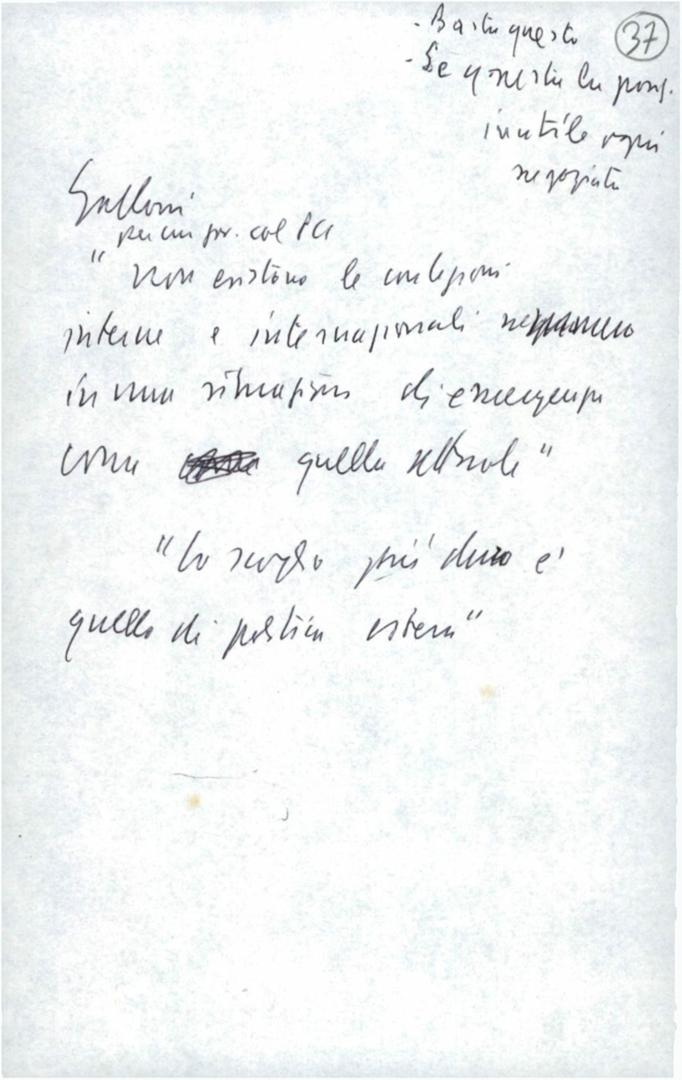 - Basta questo
37
- Se questa la pos.
inutile ogni
negoziato
Galloni
per un gov. col PCI
"Non esistono le condizioni
interne e internazionali neppure
in una situazione di emergenza
come quella attuale"
"Lo scoglio più duro è
quello di politica estera"